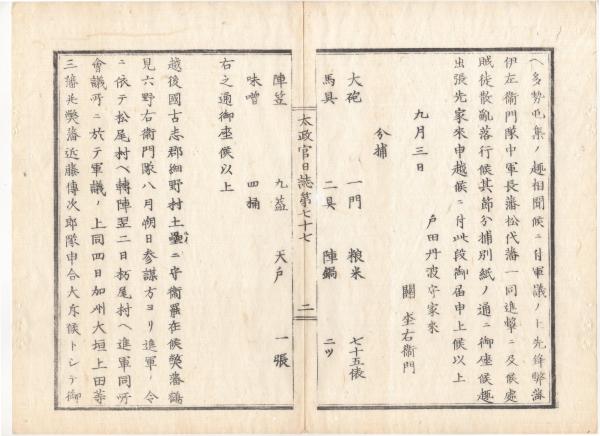 ヘ多勢屯集ノ趣相聞候ニ付軍議ノ上先鋒弊藩
伊左衞門隊中軍長藩松代藩一同進擊ニ及候處
賊徒散亂落行候其節分捕別紙ノ通ニ御座候趣
出張先家來申越候ニ付此段御届申上候以上
九月三日
戸田丹波守家来
關 杢右衞門
分捕
大砲 一門 粮米 七十五俵
馬具 二具 陣鍋 二ツ
太政官日誌第七十七 二
陣笠 九蓋 天戸 一張
味噌 四桶
右之通御座候以上
越後國古志郡細野村土壘ニ守衞罷在候弊藩鶴
見六野右衞門隊八月朔日参謀方ヨリ進軍ノ令
ニ依テ松尾村ヘ轉陣翌二日栃尾村ヘ進軍同所
會議所ニ於テ軍議ノ上同四日加州大垣上田等
三藩共弊藩近藤傳次郎隊申合大斥候トシテ御